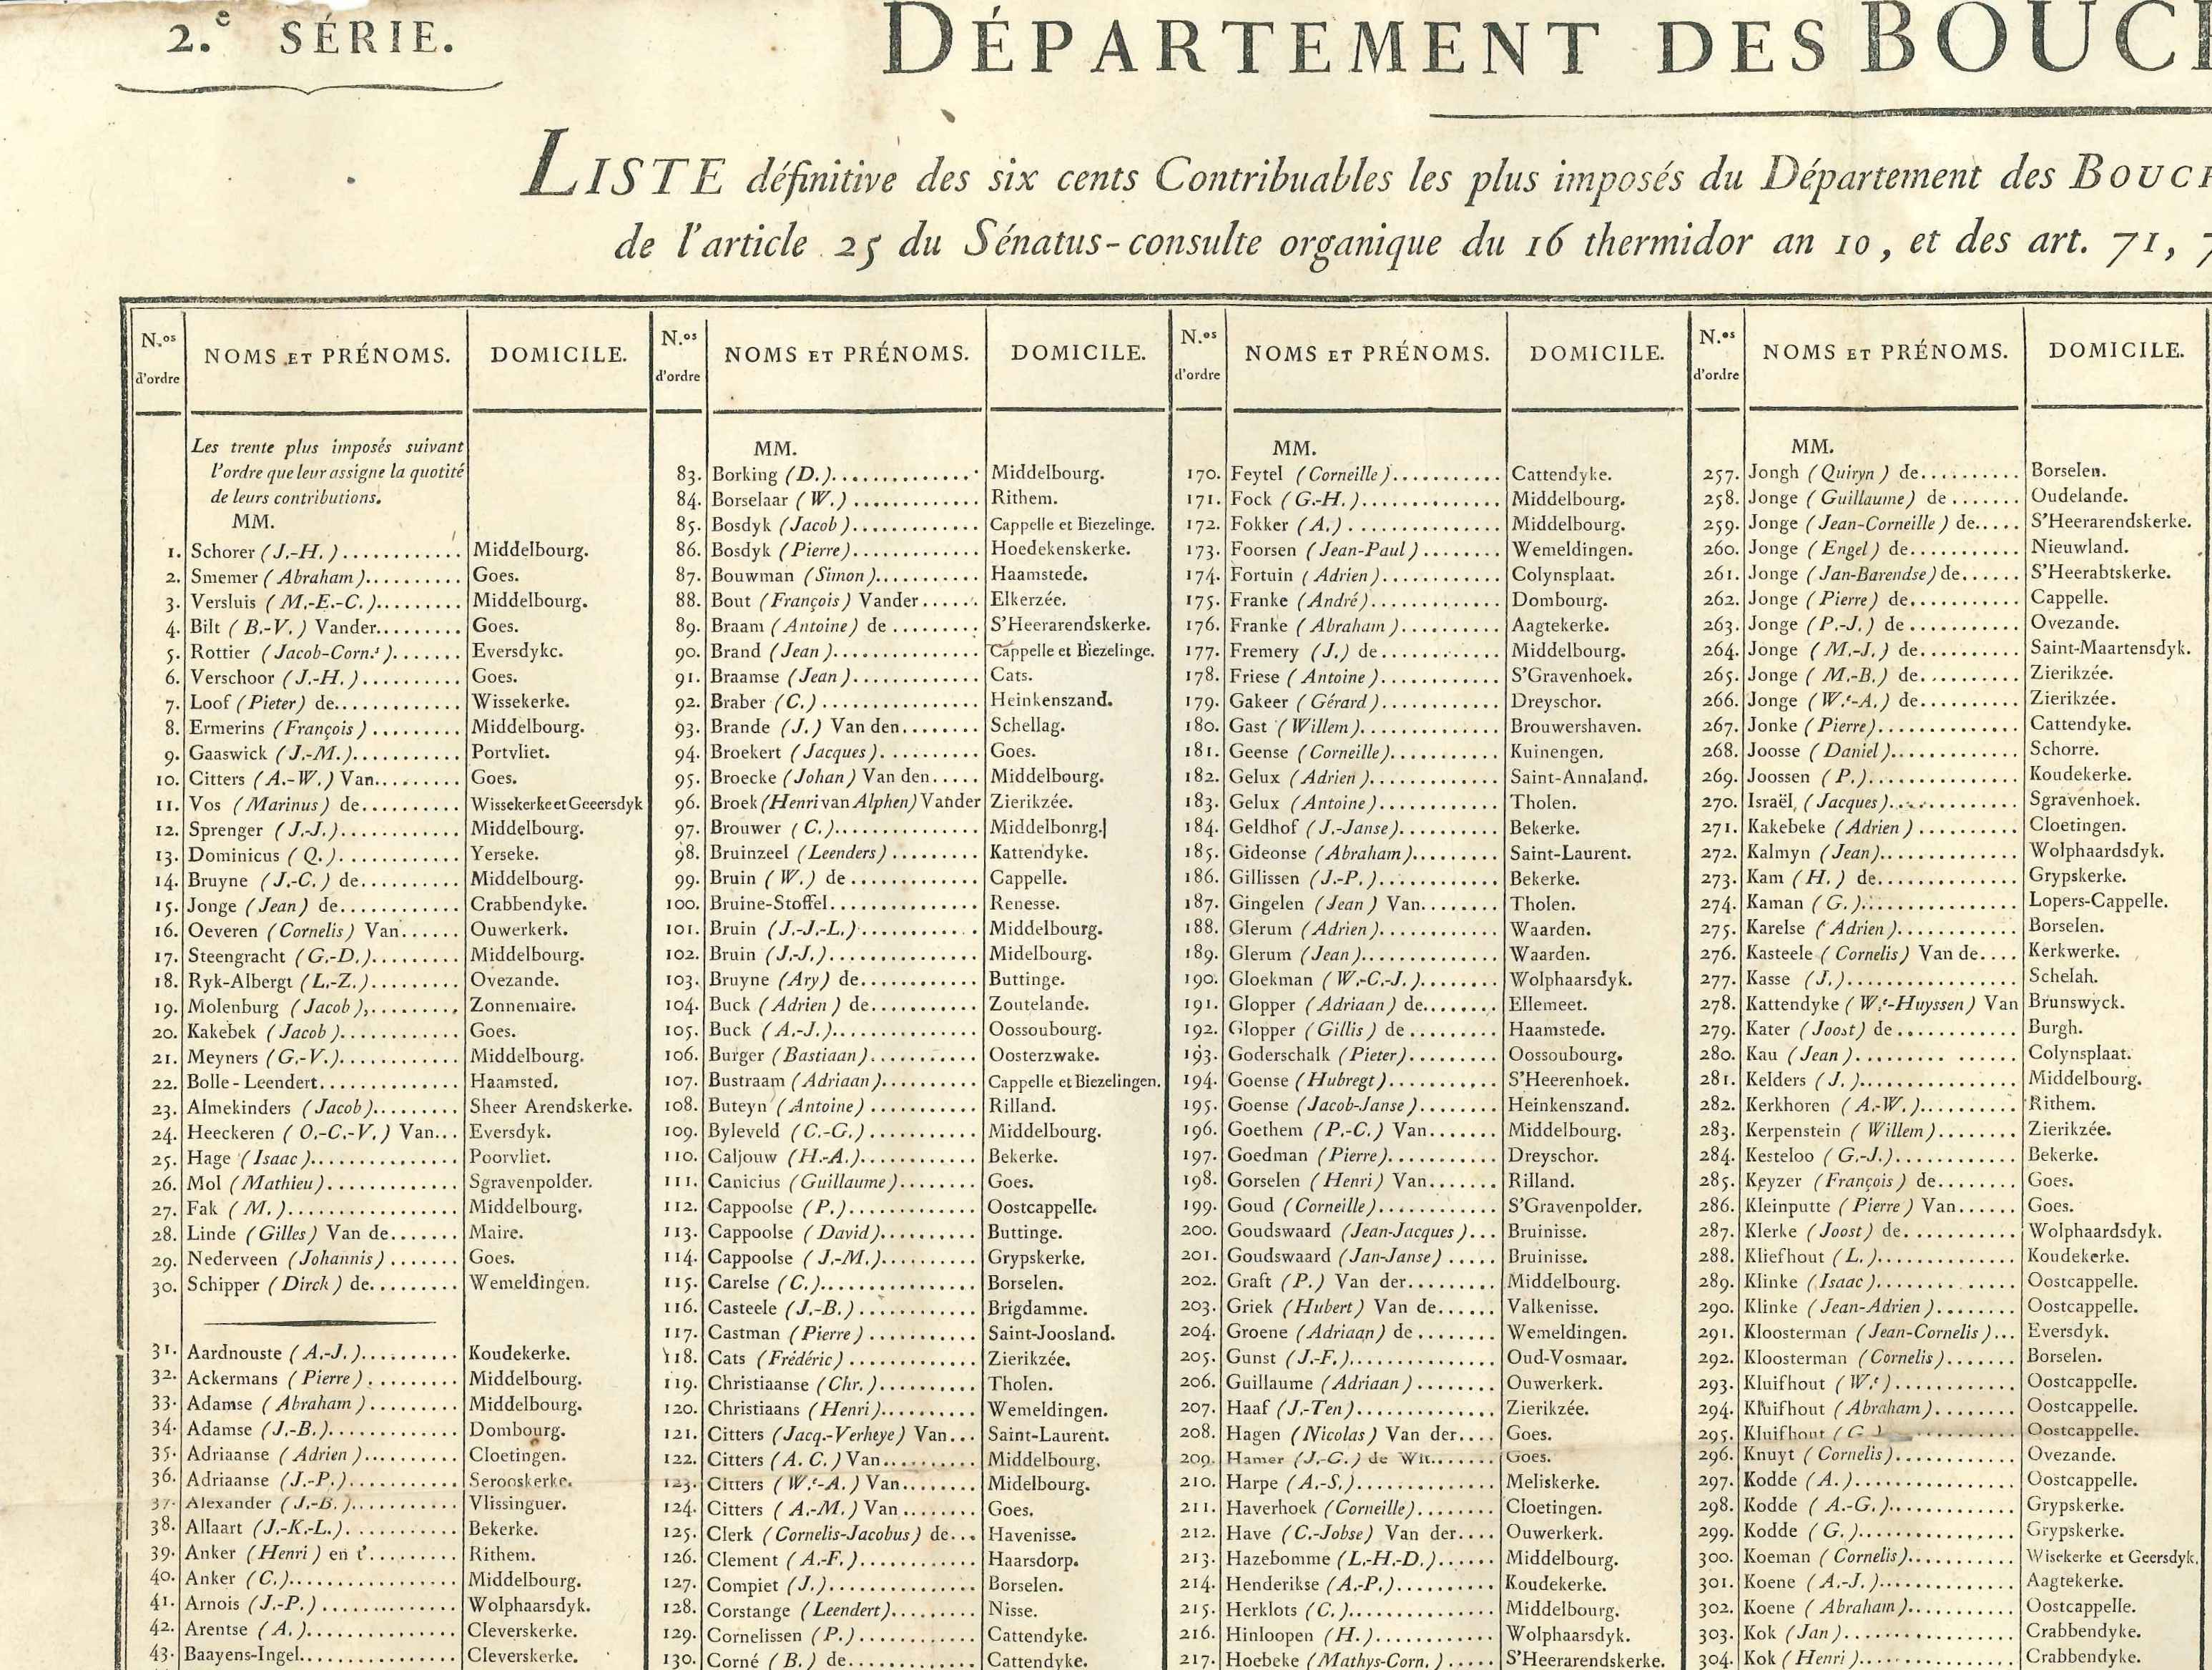 2.e SÉRIE.
DÉPARTEMENT DES BOUC
LISTE définitive des six cents Contribuables les plus imposés du Département des BOUC
de l'article 25 du Sénatus-consulte organique du 16 thermidor an 10, et des art. 71,
N.os d'ordre NOMS ET PRÉNOMS. DOMICILE.
Les trente plus imposés suivant
l'ordre que leur assigne la quotité
de leurs contributions.
MM.
1. Schorer (J.-H.)........... Middelbourg.
2. Smemer (Abraham).......... Goes.
3. Versluis (M.-E.-C.)......... Middelbourg.
4. Bilt (B.-V.) Vander......... Goes.
5. Rottier (Jacob-Corn.s)....... Eversdyke.
6. Verschoor (J.-H.).......... Goes.
7. Loof (Pieter) de............ Wissekerke.
8. Ermerins (François)......... Middelbourg.
9. Gaaswick (J.-M.)........... Portvliet.
10. Citters (A.-W.) Van......... Goes.
11. Vos (Marinus) de.......... Wissekerke et Geeersdyk
12. Sprenger (J.-J.)............ Middelbourg.
13. Dominicus (Q.)............ Yerseke.
14. Bruyne (J.-C.) de.......... Middelbourg.
15. Jonge (Jean) de............ Crabbendyke.
16. Oeveren (Cornelis) Van...... Ouwerkerk.
17. Steengracht (G.-D.)......... Middelbourg.
18. Ryk-Albergt (L.-Z.)......... Ovezande.
19. Molenburg (Jacob),......... Zonnemaire.
20. Kakebek (Jacob)............ Goes.
21. Meyners (G.-V.)............ Middelbourg.
22. Bolle-Leendert.............. Haamsted.
23. Almekinders (Jacob)......... Sheer Arendskerke.
24. Heeckeren (O.-C.-V.) Van... Eversdyk.
25. Hage (Isaac)............... Poorvliet.
26. Mol (Mathieu)............. Sgravenpolder.
27. Fak (M.)................. Middelbourg.
28. Linde (Gilles) Van de....... Maire.
29. Nederveen (Johannis)....... Goes.
30. Schipper (Dirck) de......... Wemeldingen.
31. Aardnouste (A.-J.).......... Koudekerke.
32. Ackermans (Pierre)......... Middelbourg.
33. Adamse (Abraham)......... Middelbourg.
34. Adamse (J.-B.)............. Dombourg.
35. Adriaanse (Adrien).......... Cloetingen.
36. Adriaanse (J.-P.)........... Serooskerke.
37. Alexander (J.-B.)........... Vlissinguer.
38. Allaart (J.-K.-L.)........... Bekerke.
39. Anker (Henri) en t'......... Rithem.
40. Anker (C.)................ Middelbourg.
41. Arnois (J.-P.)............. Wolphaarsdyk.
42. Arentse (A.).............. Cleverskerke.
43. Baayens-Ingel.............. Cleverskerke.
N.os d'ordre NOMS ET PRÉNOMS. DOMICILE.
MM.
83. Borking (D.).............. Middelbourg.
84. Borselaar (W.)............ Rithem.
85. Bosdyk (Jacob)............ Cappelle et Biezelinge.
86. Bosdyk (Pierre)............ Hoedekenskerke.
87. Bouwman (Simon).......... Haamstede.
88. Bout (François) Vander...... Elkerzée.
89. Braam (Antoine) de......... S'Heerarendskerke.
90. Brand (Jean).............. Cappelle et Biezelinge.
91. Braamse (Jean)............ Cats.
92. Braber (C.)............... Heinkenszand.
93. Brande (J.) Van den........ Schellag.
94. Broekert (Jacques).......... Goes.
95. Broecke (Johan) Van den..... Middelbourg.
96. Broek (Henri van Alphen) Vander Zierikzée.
97. Brouwer (C.).............. Middelbonrg.
98. Bruinzeel (Leenders)......... Kattendyke.
99. Bruin (W.) de............. Cappelle.
100. Bruine-Stoffel.............. Renesse.
101. Bruin (J.-J.-L.)............ Middelbourg.
102. Bruin (J.-J.).............. Midelbourg.
103. Bruyne (Ary) de........... Buttinge.
104. Buck (Adrien) de........... Zoutelande.
105. Buck (A.-J.).............. Oossoubourg.
106. Burger (Bastiaan)........... Oosterzwake.
107. Bustraam (Adriaan)......... Cappelle et Biezelingen.
108. Buteyn (Antoine)........... Rilland.
109. Byleveld (C.-G.)........... Middelbourg.
110. Caljouw (H.-A.)............ Bekerke.
111. Canicius (Guillaume)........ Goes.
112. Cappoolse (P.)............. Oostcappelle.
113. Cappoolse (David).......... Buttinge.
114. Cappoolse (J.-M.).......... Grypskerke.
115. Carelse (C.)............... Borselen.
116. Casteele (J.-B.)............ Brigdamme.
117. Castman (Pierre)........... Saint-Joosland.
118. Cats (Frédéric)............ Zierikzée.
119. Christiaanse (Chr.)......... Tholen.
120. Christiaans (Henri).......... Wemeldingen.
121. Citters (Jacq.-Verheye) Van... Saint-Laurent.
122. Citters (A. C.) Van.......... Middelbourg.
123. Citters (W.e-A.) Van........ Midelbourg.
124. Citters (A.-M.) Van........ Goes.
125. Clerk (Cornelis-Jacobus) de... Havenisse.
126. Clement (A.-F.)............ Haarsdorp.
127. Compiet (J.).............. Borselen.
128. Corstange (Leendert)......... Nisse.
129. Cornelissen (P.)............ Cattendyke.
130. Corné (B.) de............. Cattendyke.
N.os d'ordre NOMS ET PRÉNOMS. DOMICILE.
MM.
170. Feytel (Corneille)........... Cattendyke.
171. Fock (G.-H.).............. Middelbourg.
172. Fokker (A.).............. Middelbourg.
173. Foorsen (Jean-Paul)........ Wemeldingen.
174. Fortuin (Adrien)............ Colynsplaat.
175. Franke (André)............. Dombourg.
176. Franke (Abraham).......... Aagtekerke.
177. Fremery (J.) de............ Middelbourg.
178. Friese (Antoine)............ S'Gravenhoek.
179. Gakeer (Gérard)............ Dreyschor.
180. Gast (Willem).............. Brouwershaven.
181. Geense (Corneille)........... Kuinengen.
182. Gelux (Adrien)............. Saint-Annaland.
183. Gelux (Antoine)............ Tholen.
184. Geldhof (J.-Janse).......... Bekerke.
185. Gideonse (Abraham)......... Saint-Laurent.
186. Gillissen (J.-P.)............ Bekerke.
187. Gingelen (Jean) Van........ Tholen.
188. Glerum (Adrien)............ Waarden.
189. Glerum (Jean)............. Waarden.
190. Gloekman (W.-C.-J.)........ Wolphaarsdyk.
191. Glopper (Adriaan) de........ Ellemeet.
192. Glopper (Gillis) de.......... Haamstede.
193. Goderschalk (Pieter)........ Oossoubourg.
194. Goense (Hubregt)........... S'Heerenhoek.
195. Goense (Jacob-Janse)........ Heinkenszand.
196. Goethem (P.-C.) Van....... Middelbourg.
197. Goedman (Pierre).......... Dreyschor.
198. Gorselen (Henri) Van....... Rilland.
199. Goud (Corneille)........... S'Gravenpolder.
200. Goudswaard (Jean-Jacques)... Bruinisse.
201. Goudswaard (Jan-Janse)..... Bruinisse.
202. Graft (P.) Van der......... Middelbourg.
203. Griek (Hubert) Van de...... Valkenisse.
204. Groene (Adriaan) de........ Wemeldingen.
205. Gunst (J.-F.).............. Oud-Vosmaar.
206. Guillaume (Adriaan)........ Ouwerkerk.
207. Haaf (J.-Ten)............. Zierikzée.
208. Hagen (Nicolas) Van der.... Goes.
209. Hamer (J.-G.) de Wit....... Goes.
210. Harpe (A.-S.)............. Meliskerke.
211. Haverhoek (Corneille)....... Cloetingen.
212. Have (C.-Jobse) Van der.... Ouwerkerk.
213. Hazebomme (L.-H.-D.)...... Middelbourg.
214. Henderikse (A.-P.)......... Koudekerke.
215. Herklots (C.).............. Middelbourg.
216. Hinloopen (H.)............ Wolphaarsdyk.
217. Hoebeke (Mathys-Corn.)..... S'Heerarendskerke.
N.os d'ordre NOMS ET PRÉNOMS. DOMICILE.
MM.
257. Jongh (Quiryn) de.......... Borselen.
258. Jonge (Guillaume) de....... Oudelande.
259. Jonge (Jean-Corneille) de..... S'Heerarendskerke.
260. Jonge (Engel) de........... Nieuwland.
261. Jonge (Jan-Barendse) de...... S'Heerabtskerke.
262. Jonge (Pierre) de........... Cappelle.
263. Jonge (P.-J.) de........... Ovezande.
264. Jonge (M.-J.) de........... Saint-Maartensdyk.
265. Jonge (M.-B.) de.......... Zierikzée.
266. Jonge (W.e-A.) de.......... Zierikzée.
267. Jonke (Pierre)............. Cattendyke.
268. Joosse (Daniel)............ Schorre.
269. Joossen (P.).............. Koudekerke.
270. Israël, (Jacques)............ Sgravenhoek.
271. Kakebeke (Adrien).......... Cloetingen.
272. Kalmyn (Jean)............. Wolphaardsdyk.
273. Kam (H.) de.............. Grypskerke.
274. Kaman (G.)............... Lopers-Cappelle.
275. Karelse (Adrien)........... Borselen.
276. Kasteele (Cornelis) Van de.... Kerkwerke.
277. Kasse (J.)................ Schelah.
278. Kattendyke (W.e-Huyssen) Van Brunswyck.
279. Kater (Joost) de........... Burgh.
280. Kau (Jean)............... Colynsplaat.
281. Kelders (J.)............... Middelbourg.
282. Kerkhoren (A.-W.)......... Rithem.
283. Kerpenstein (Willem)........ Zierikzée.
284. Kesteloo (G.-J.)............ Bekerke.
285. Keyzer (François) de........ Goes.
286. Kleinputte (Pierre) Van...... Goes.
287. Klerke (Joost) de........... Wolphaardsdyk.
288. Kliefhout (L.)............. Koudekerke.
289. Klinke (Isaac)............. Oostcappelle.
290. Klinke (Jean-Adrien)........ Oostcappelle.
291. Kloosterman (Jean-Cornelis)... Eversdyk.
292. Kloosterman (Cornelis)....... Borselen.
293. Kluifhout (W.e)............ Oostcappelle.
294. Kluifhout (Abraham)........ Oostcappelle.
295. Kluifhout (G.) Oostcappelle.
296. Knuyt (Cornelis)........... Ovezande.
297. Kodde (A.)............... Oostcappelle.
298. Kodde (A.-G.)............ Grypskerke.
299. Kodde (G.)............... Grypskerke.
300. Koeman (Cornelis).......... Wisekerke et Geersdyk.
301. Koene (A.-J.)............. Aagtekerke.
302. Koene (Abraham).......... Oostcappelle.
303. Kok (Jan)................ Crabbendyke.
304. Kok (Henri).............. Crabbendyke.